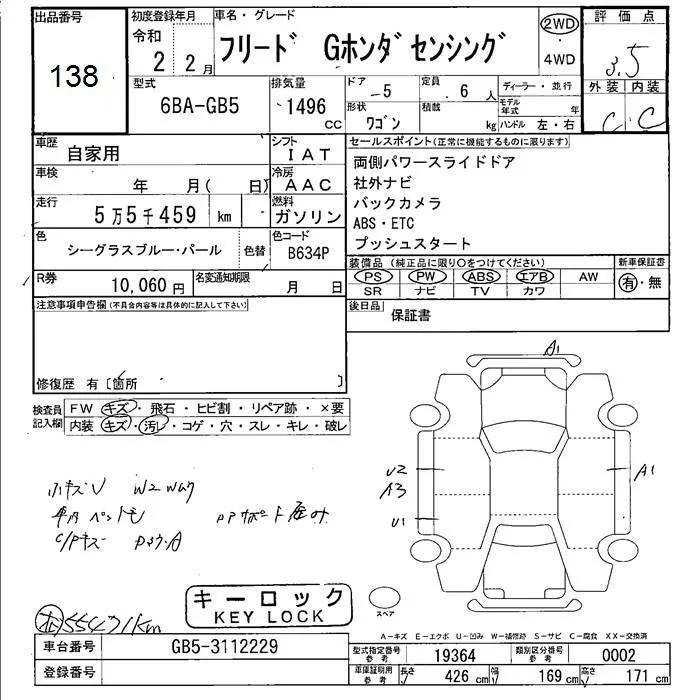 出品番号 初度登録年月 車名・グレード 2WD 評価点
138 令和 2年 2月 フリード Gホンダセンシング 4WD 3.5
型式 排気量 ドア 5 定員 6人 ディーラー・並行 外装 内装
6BA-GB5 1496 CC 形状 ワゴン 積載 kg モデル年式 年 C C
ハンドル 左・右
車歴 自家用 シフト IAT セールスポイント(正常に機能するものに限ります)
車検 年 月( 日) 冷房 AAC 両側パワースライドドア
走行 5万5千459 km 燃料 ガソリン 社外ナビ
バックカメラ
ABS・ETC
プッシュスタート
色 シーグラスブルー・パール 色替 色コード B634P
装備品(純正品に限り○をつけてください) 新車保証書
PS PW ABS エアB AW 有・無
SR ナビ TV カワ
R券 10,060円 名変通知期限 月 日
後日品 保証書
注意事項申告欄(不具合内容等は具体的に記入して下さい)
修復歴 有〔箇所 〕
検査員記入欄 FW キズ・飛石・ヒビ割・リペア跡・×要
内装 キズ・汚レ・コゲ・穴・スレ・キレ・破レ
A1
U2
A3
A1
U1
小キズU
C/Pキズ
キーロック
KEY LOCK
スペア
55471km
A-キズ E-エクボ U-凹み W-補修跡 S-サビ C-腐食 XX-交換済
車台番号 GB5-3112229
型式指定番号 参考 19364 類別区分番号 参考 0002
登録番号
車庫証明用 参考 長さ 426cm 幅 169cm 高さ 171cm